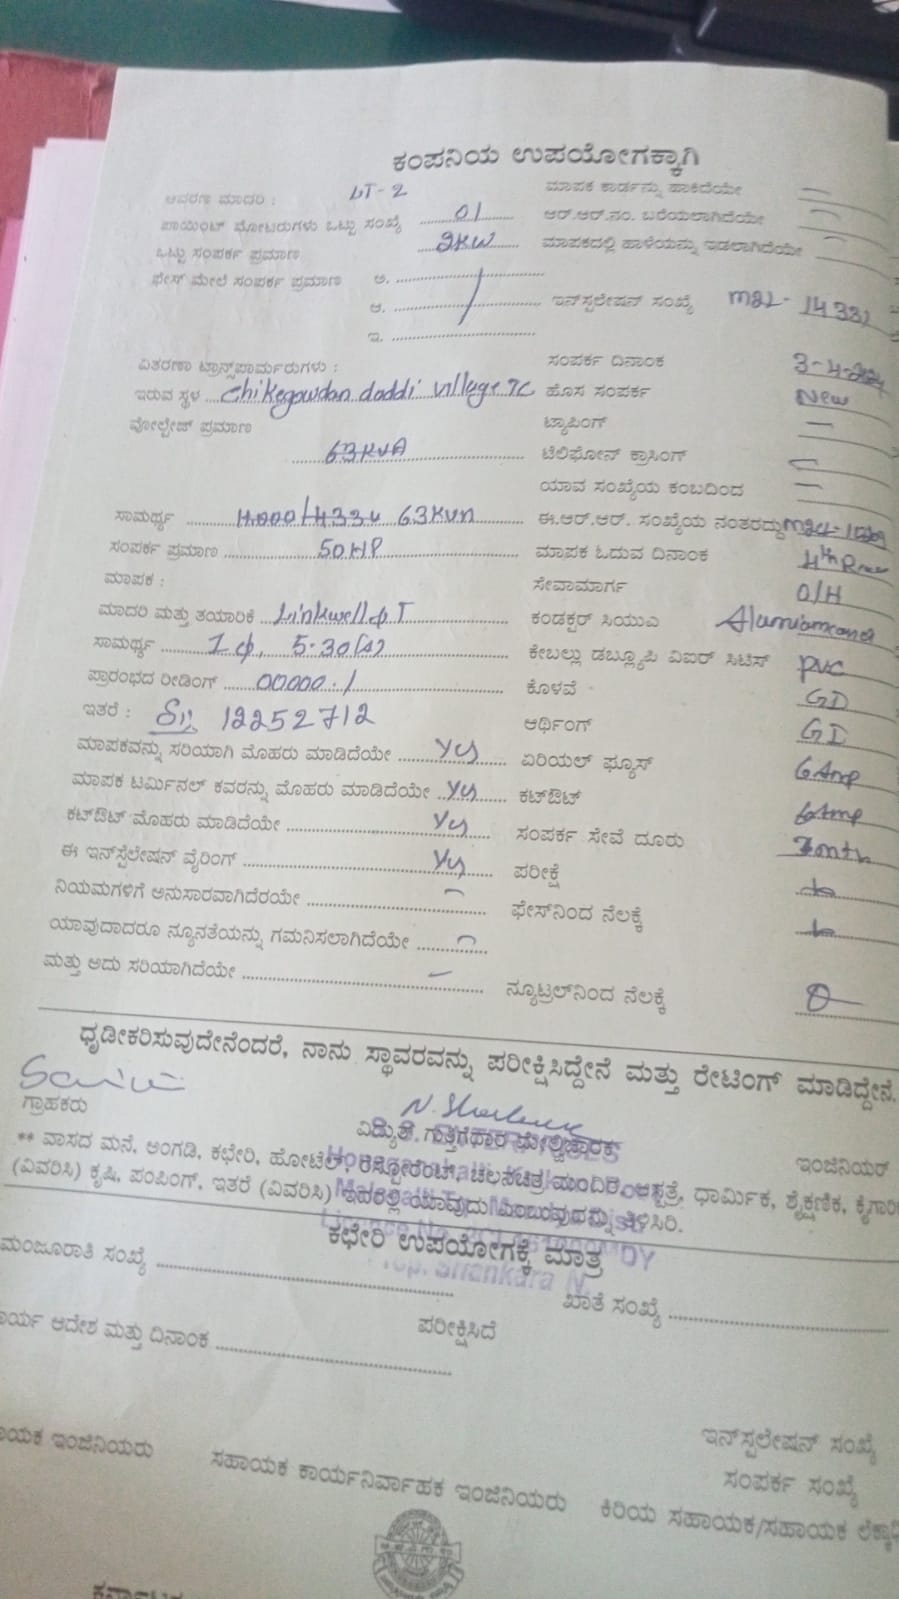 ಕಂಪನಿಯ ಉಪಯೋಗಕ್ಕಾಗಿ
ಆವರಣ ಮಾದರಿ : LT-2 ಮಾಪಕ ಕಾರ್ಡನ್ನು ಹಾಕಿದೆಯೇ —
ಪಾಯಿಂಟ್ ಮೋಟರುಗಳು ಒಟ್ಟು ಸಂಖ್ಯೆ 01 ಆರ್.ಆರ್.ನಂ. ಬರೆಯಲಾಗಿದೆಯೇ —
ಒಟ್ಟು ಸಂಪರ್ಕ ಪ್ರಮಾಣ 2KW ಮಾಪಕದಲ್ಲಿ ಹಾಳೆಯನ್ನು ಇಡಲಾಗಿದೆಯೇ —
ಫೇಸ್ ಮೇಲೆ ಸಂಪರ್ಕ ಪ್ರಮಾಣ ಅ.
ಆ. ಇನ್‌ಸ್ಟಲೇಷನ್ ಸಂಖ್ಯೆ 14332
ಇ.
ವಿತರಣಾ ಟ್ರಾನ್ಸ್‌ಫಾರ್ಮರುಗಳು : ಸಂಪರ್ಕ ದಿನಾಂಕ 3-4-2024
ಇರುವ ಸ್ಥಳ Chikegowdan doddi village TC ಹೊಸ ಸಂಪರ್ಕ New
ವೋಲ್ಟೇಜ್ ಪ್ರಮಾಣ ಟ್ಯಾಪಿಂಗ್ —
63KVA ಟೆಲಿಫೋನ್ ಕ್ರಾಸಿಂಗ್ —
ಯಾವ ಸಂಖ್ಯೆಯ ಕಂಬದಿಂದ —
ಸಾಮರ್ಥ್ಯ 63KVA ಈ.ಆರ್.ಆರ್. ಸಂಖ್ಯೆಯ ನಂತರದ್ದು
ಸಂಪರ್ಕ ಪ್ರಮಾಣ 50HP ಮಾಪಕ ಓದುವ ದಿನಾಂಕ 4th
ಮಾಪಕ : ಸೇವಾಮಾರ್ಗ O/H
ಮಾದರಿ ಮತ್ತು ತಯಾರಿಕೆ Linkwell ಕಂಡಕ್ಟರ್ ಸಿಯುಎ
ಸಾಮರ್ಥ್ಯ 1 ф, 5-30(A) ಕೇಬಲ್ಲು ಡಬ್ಲ್ಯೂಪಿ ವಿಐಆರ್ ಸಿಟಿಸ್ PVC
ಪ್ರಾರಂಭದ ರೀಡಿಂಗ್ 00000.1 ಕೊಳವೆ GD
ಇತರೆ : 12252712 ಆರ್ಥಿಂಗ್ GI
ಮಾಪಕವನ್ನು ಸರಿಯಾಗಿ ಮೊಹರು ಮಾಡಿದೆಯೇ Yes ಏರಿಯಲ್ ಫ್ಯೂಸ್ 6Amp
ಮಾಪಕ ಟರ್ಮಿನಲ್ ಕವರನ್ನು ಮೊಹರು ಮಾಡಿದೆಯೇ Yes ಕಟ್‌ಔಟ್ 6Amp
ಕಟ್‌ಔಟ್ ಮೊಹರು ಮಾಡಿದೆಯೇ Yes ಸಂಪರ್ಕ ಸೇವೆ ದೂರು
ಈ ಇನ್‌ಸ್ಟಲೇಷನ್ ವೈರಿಂಗ್ Yes ಪರೀಕ್ಷೆ
ನಿಯಮಗಳಿಗೆ ಅನುಸಾರವಾಗಿದೆರಯೇ — ಫೇಸ್‌ನಿಂದ ನೆಲಕ್ಕೆ
ಯಾವುದಾದರೂ ನ್ಯೂನತೆಯನ್ನು ಗಮನಿಸಲಾಗಿದೆಯೇ —
ಮತ್ತು ಅದು ಸರಿಯಾಗಿದೆಯೇ — ನ್ಯೂಟ್ರಲ್‌ನಿಂದ ನೆಲಕ್ಕೆ
ಧೃಡೀಕರಿಸುವುದೇನೆಂದರೆ, ನಾನು ಸ್ಥಾವರವನ್ನು ಪರೀಕ್ಷಿಸಿದ್ದೇನೆ ಮತ್ತು ರೇಟಿಂಗ್ ಮಾಡಿದ್ದೇನೆ.
ಗ್ರಾಹಕರು ವಿದ್ಯುತ್ ಗುತ್ತಿಗೆದಾರ ಮೇಲ್ವಿಚಾರಕ ಇಂಜಿನಿಯರ್
** ವಾಸದ ಮನೆ, ಅಂಗಡಿ, ಕಛೇರಿ, ಹೋಟೆಲ್, ರೆಸ್ಟೋರೆಂಟ್, ಚಲನಚಿತ್ರ ಮಂದಿರ, ಆಸ್ಪತ್ರೆ, ಧಾರ್ಮಿಕ, ಶೈಕ್ಷಣಿಕ,
(ವಿವರಿಸಿ) ಕೃಷಿ, ಪಂಪಿಂಗ್, ಇತರೆ (ವಿವರಿಸಿ) ಇವರಲ್ಲಿ ಯಾವುದು ಎಂಬುದನ್ನು ತಿಳಿಸಿರಿ.
ಕಛೇರಿ ಉಪಯೋಗಕ್ಕೆ ಮಾತ್ರ
Prop. Shankara N.
ಮಂಜೂರಾತಿ ಸಂಖ್ಯೆ ಖಾತೆ ಸಂಖ್ಯೆ
ಆದೇಶ ಮತ್ತು ದಿನಾಂಕ ಪರೀಕ್ಷಿಸಿದೆ
ಇನ್‌ಸ್ಟಲೇಷನ್ ಸಂಖ್ಯೆ
ಇಂಜಿನಿಯರು ಸಂಪರ್ಕ ಸಂಖ್ಯೆ
ಸಹಾಯಕ ಕಾರ್ಯನಿರ್ವಾಹಕ ಇಂಜಿನಿಯರು ಕಿರಿಯ ಸಹಾಯಕ/ಸಹಾಯಕ